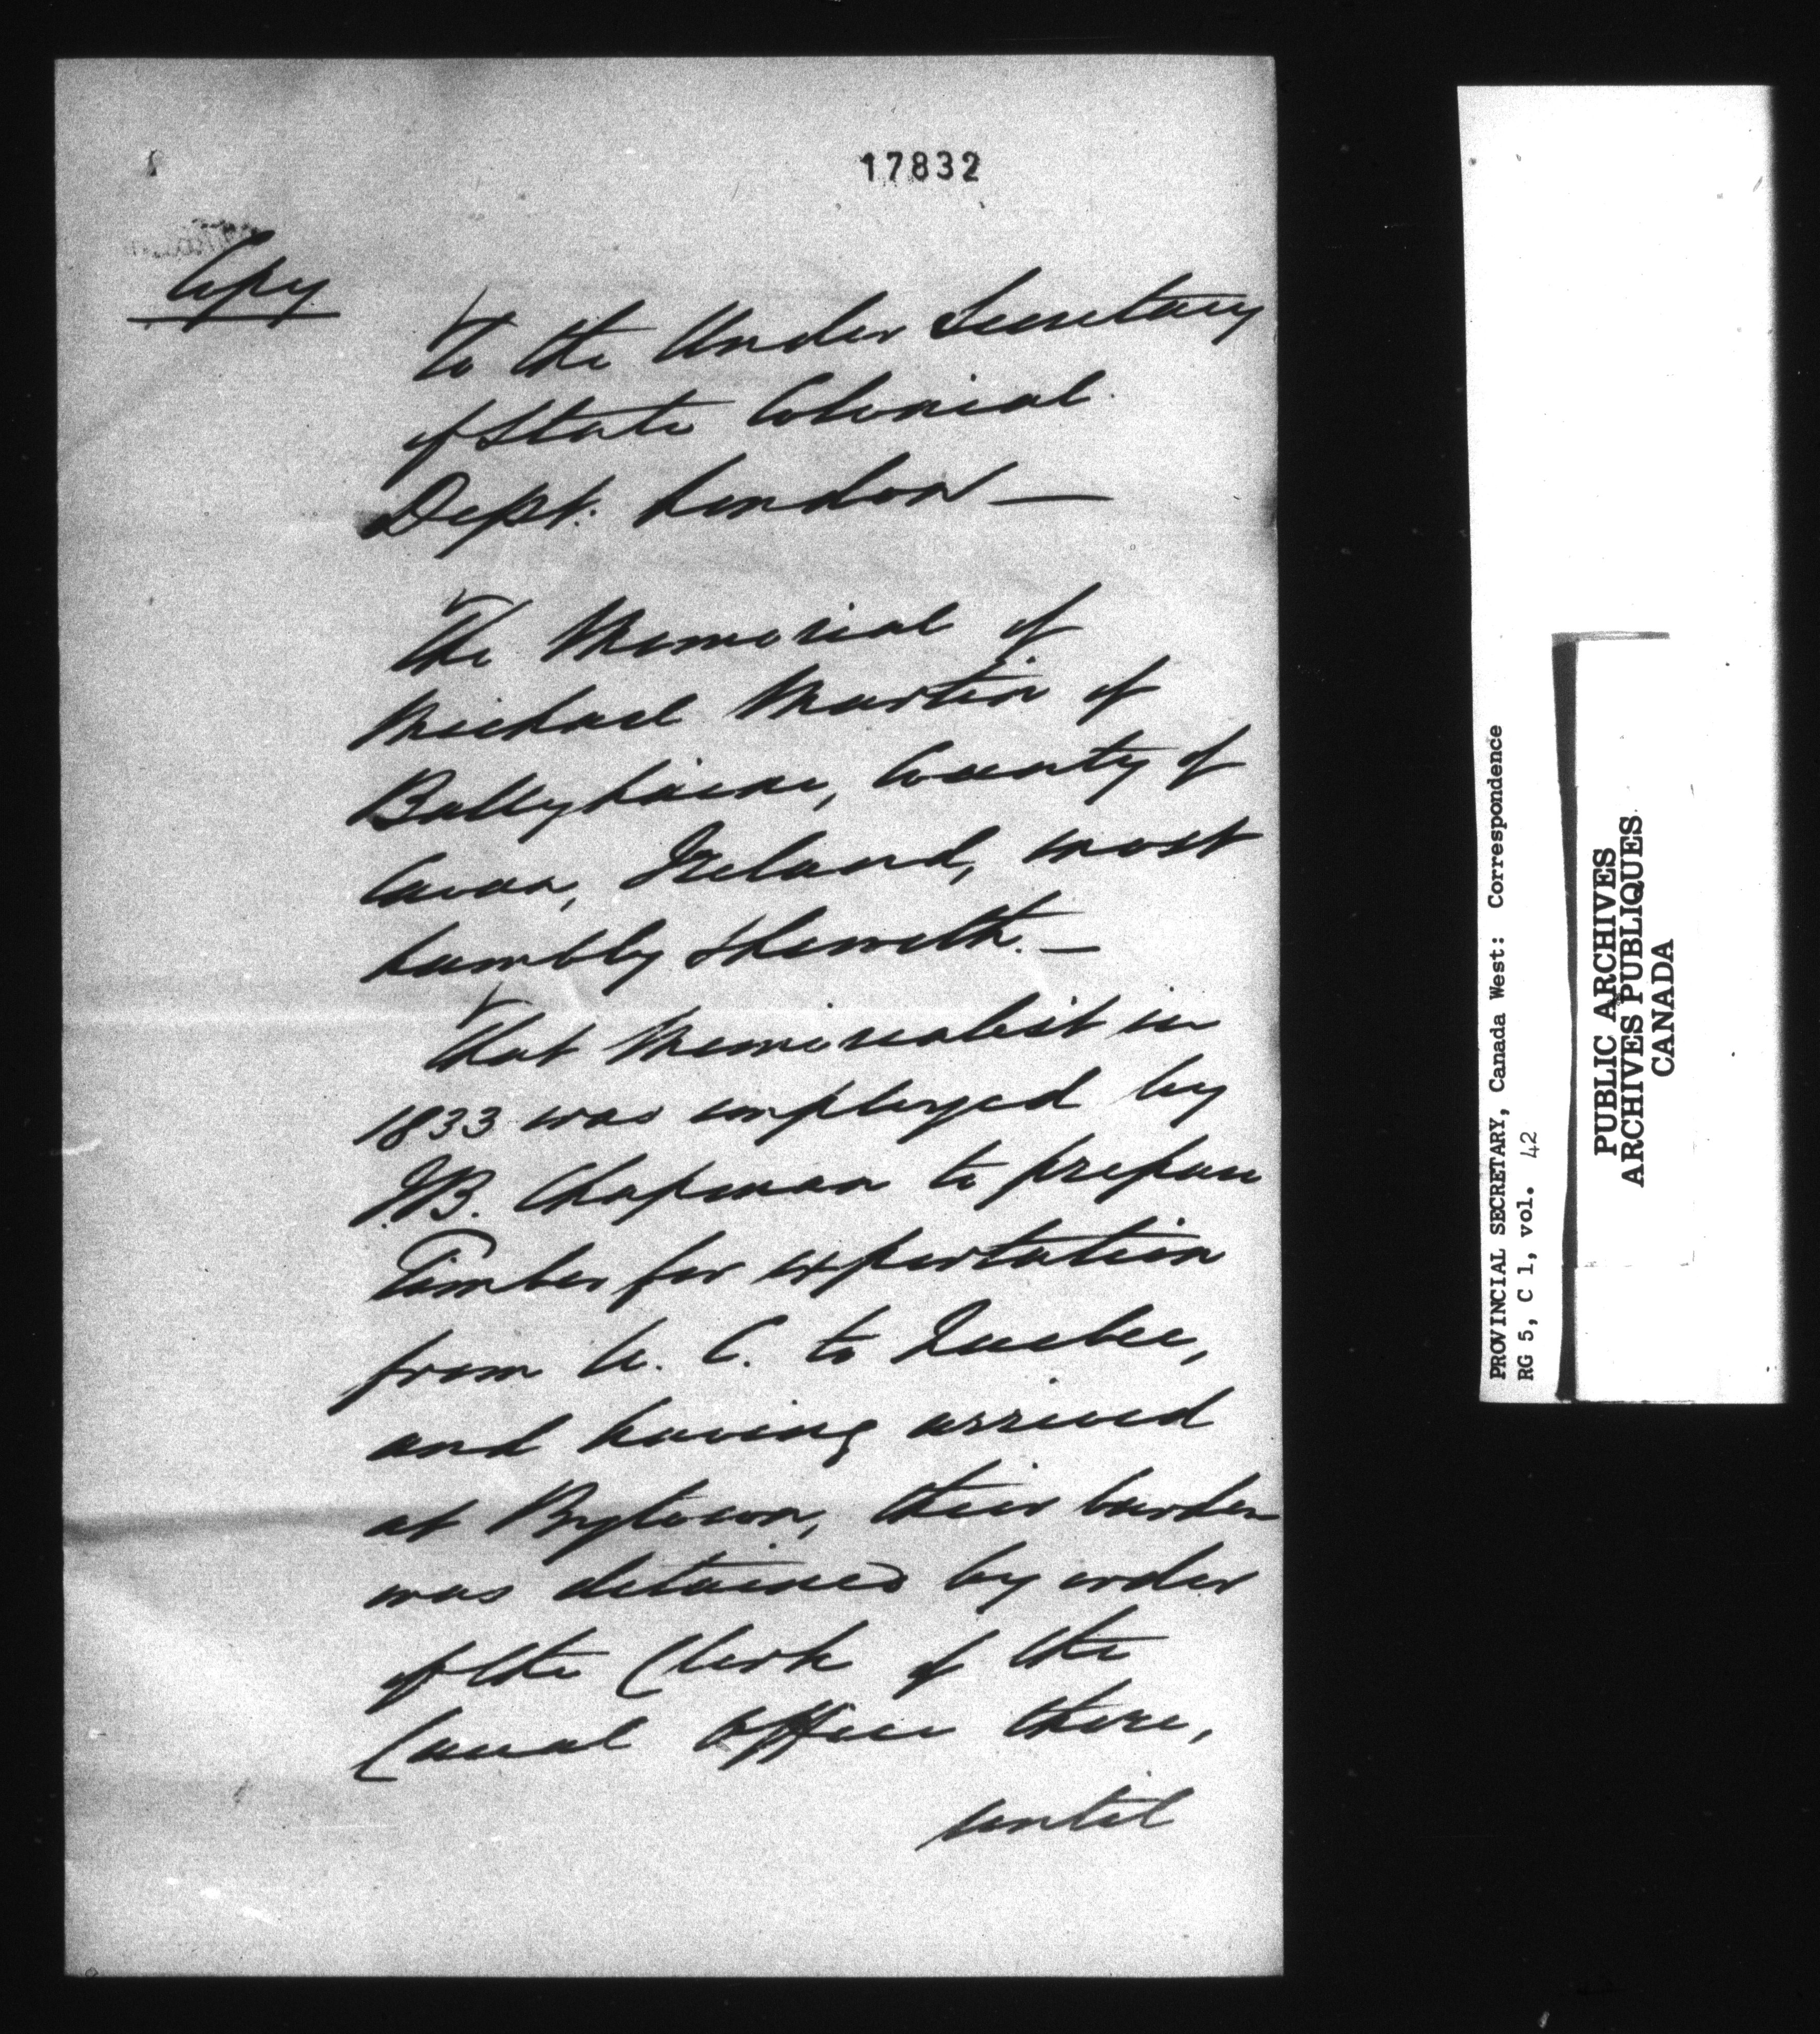 17832
Copy
To the Under Secretary
of State Colonial
Dept. London —
The Memorial of
Michael Martin of
Ballyhaise, County of
Cavan, Ireland, most
humbly Sheweth. —
That Memorialist in
1833 was employed by
J.B. Chapman to prepare
Timber for exportation
from U. C. to Quebec,
and having arrived
at Bytown, their burden
was detained by order
of the Clerk of the
Canal Office there,
until
PROVINCIAL SECRETARY, Canada West: Correspondence
RG 5, C 1, vol. 42
PUBLIC ARCHIVES
ARCHIVES PUBLIQUES
CANADA